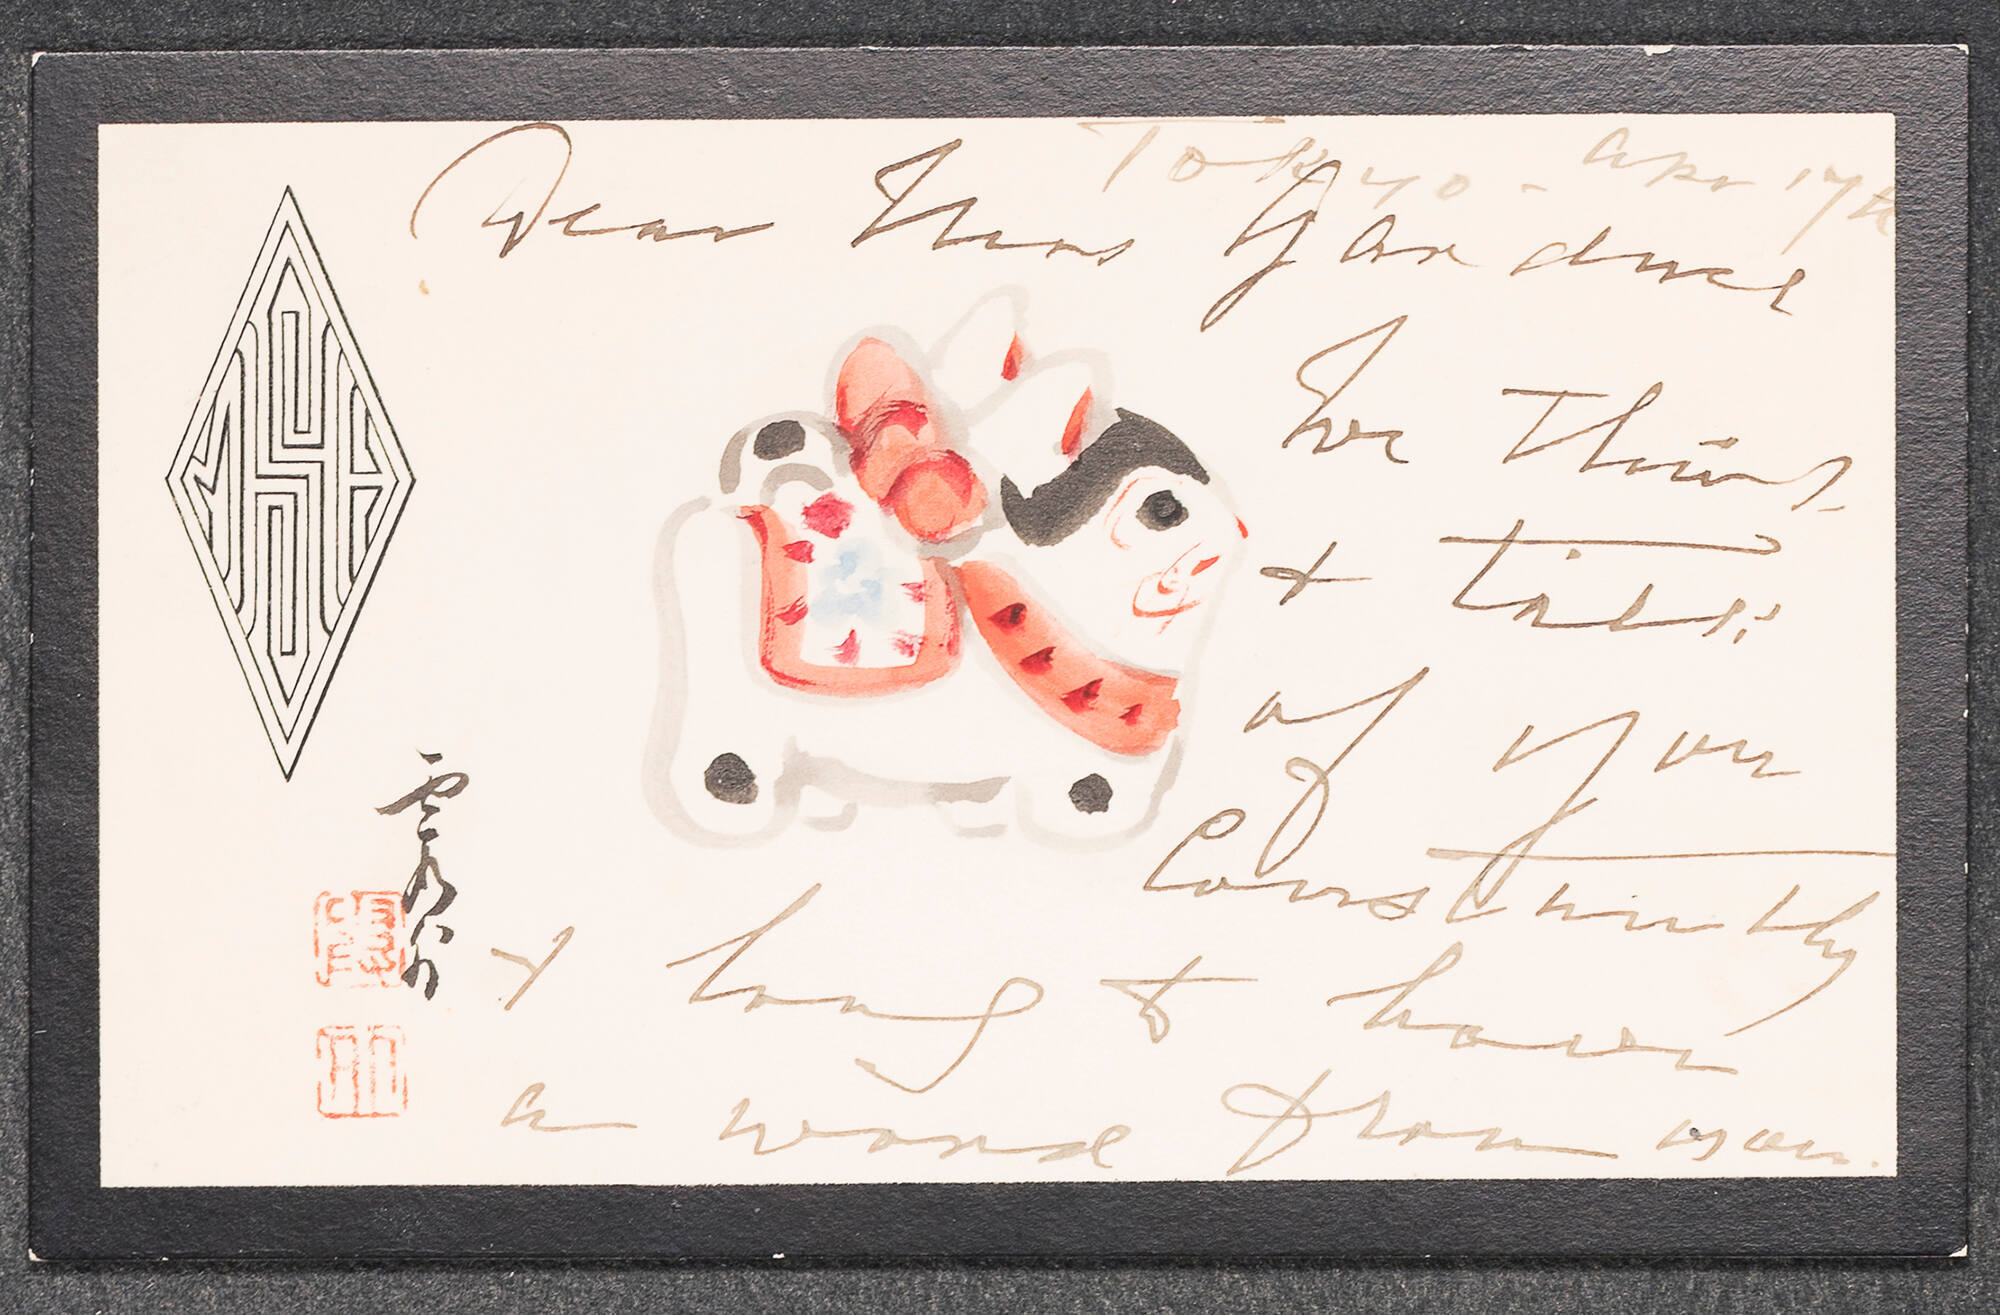 Tokyo - Apr 17th
Dear Mrs Gardner
We think
& talk
of you
Constantly
& long to have
a word from you.